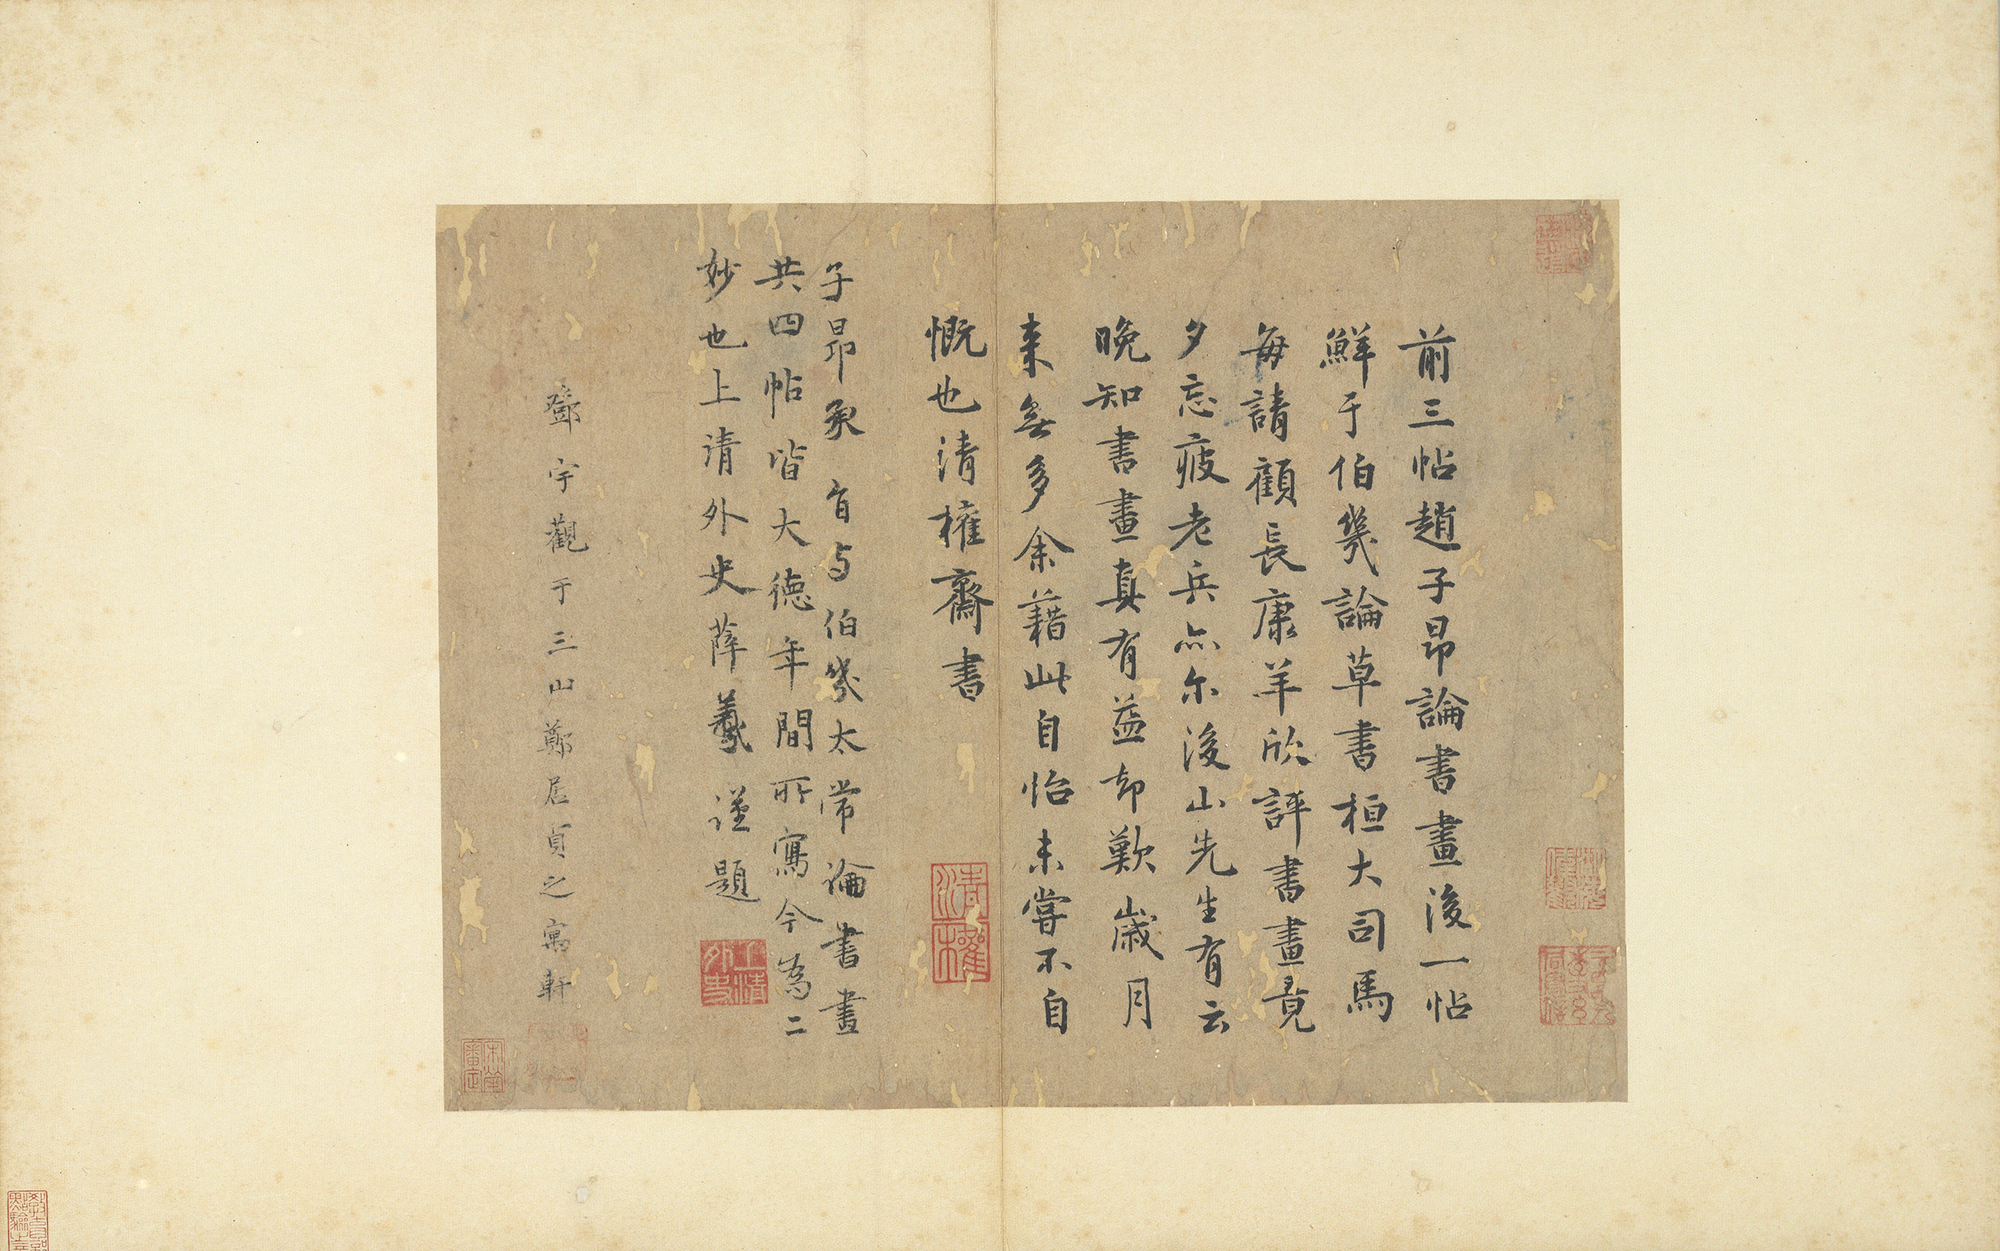 前三帖趙子昂論書畫後一帖
鮮于伯幾論草書桓大司馬
每請顧長康羊欣評書畫竟
夕忘疲老兵亦尔後山先生有云
晩知書畫真有益却歎歲月
来無多余藉此自怡未嘗不自
慨也清權齋書
清權
子昂承旨与伯幾太常論書畫
共四帖皆大德年間所寫今為二
妙也上清外史薛羲謹題
上清外史
鄧宇觀于三山鄭居貞之寓軒
宋犖審定